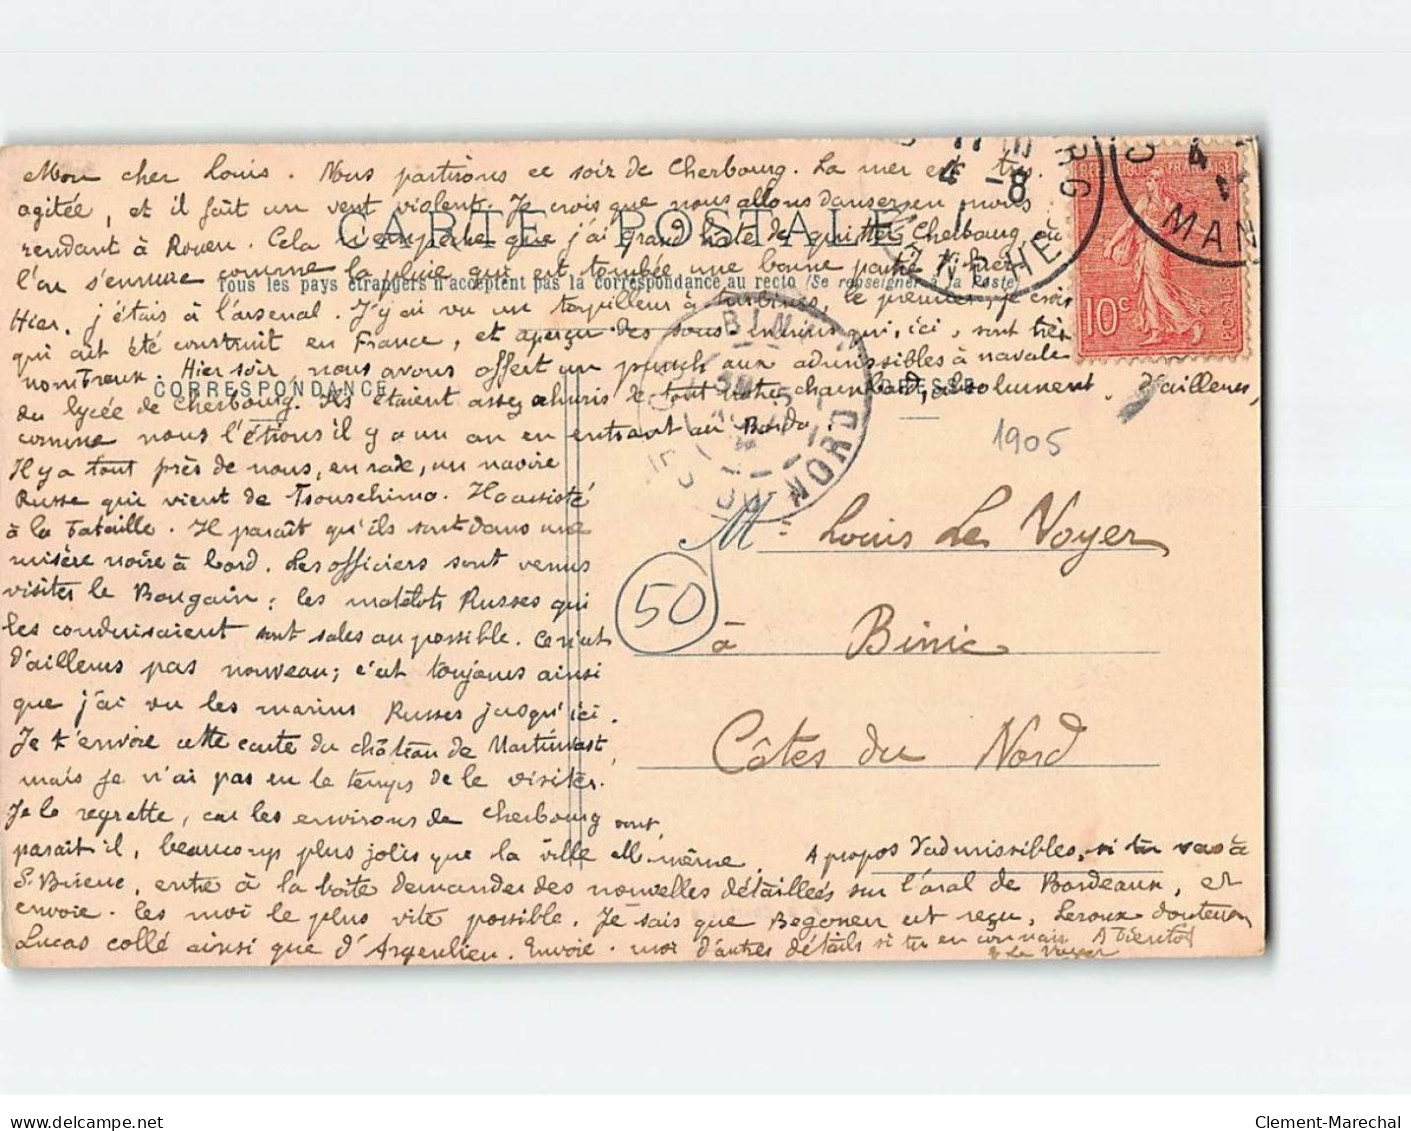 Mon cher Louis. Nous partirons ce soir de Cherbourg. La mer est très
agitée, et il fait un vent violent. Je crois que nous allons danser en nous
rendant à Rouen. Cela n'empêche que j'ai grand hâte de quitter Cherbourg où
l'on s'ennuie comme la pluie qui est tombée une bonne partie d'hier.
Hier, j'étais à l'arsenal. J'y ai vu un torpilleur à turbines, le premier, je crois
qui ait été construit en France, et aperçu des sous-marins qui, ici, sont très
nombreux. Hier soir, nous avons offert un punch aux admissibles à navale
du lycée de Cherbourg. Ils étaient assez ahuris de tout notre chambard, absolument d'ailleurs,
comme nous l'étions il y a un an en entrant au Borda.
Il y a tout près de nous, en rade, un navire
Russe qui vient de Tsouschima. Il a assisté
à la bataille. Il paraît qu'ils sont dans une
misère noire à bord. Les officiers sont venus
visiter le Bougain; les matelots Russes qui
les conduisaient sont sales au possible. Ce n'est
d'ailleurs pas nouveau; c'est toujours ainsi
que j'ai vu les marins Russes jusqu'ici.
Je t'envoie cette carte du château de Martinvast,
mais je n'ai pas eu le temps de le visiter.
Je le regrette, car les environs de Cherbourg sont,
paraît il, beaucoup plus jolis que la ville elle même. A propos d'admissibles, si tu vas à
St Brieuc, entre à la boîte demander des nouvelles détaillées sur l'oral de Bordeaux, et
envoie-les moi le plus vite possible. Je sais que Begoneu est reçu, Leroux douteux
Lucas collé ainsi que d'Argenlieu. Envoie-moi d'autres détails si tu en connais A bientôt
Le Voyer
CARTE POSTALE
Tous les pays étrangers n'acceptent pas la correspondance au recto (Se renseigner à la Poste)
CORRESPONDANCE
ADRESSE
RÉPUBLIQUE FRANÇAISE
10c
POSTES
4 -8
RG
MANCHE
4
MAN
BINIC
NORD
1905
50
Mr Louis Le Voyer
à Binic
Côtes du Nord
Clement-Marechal